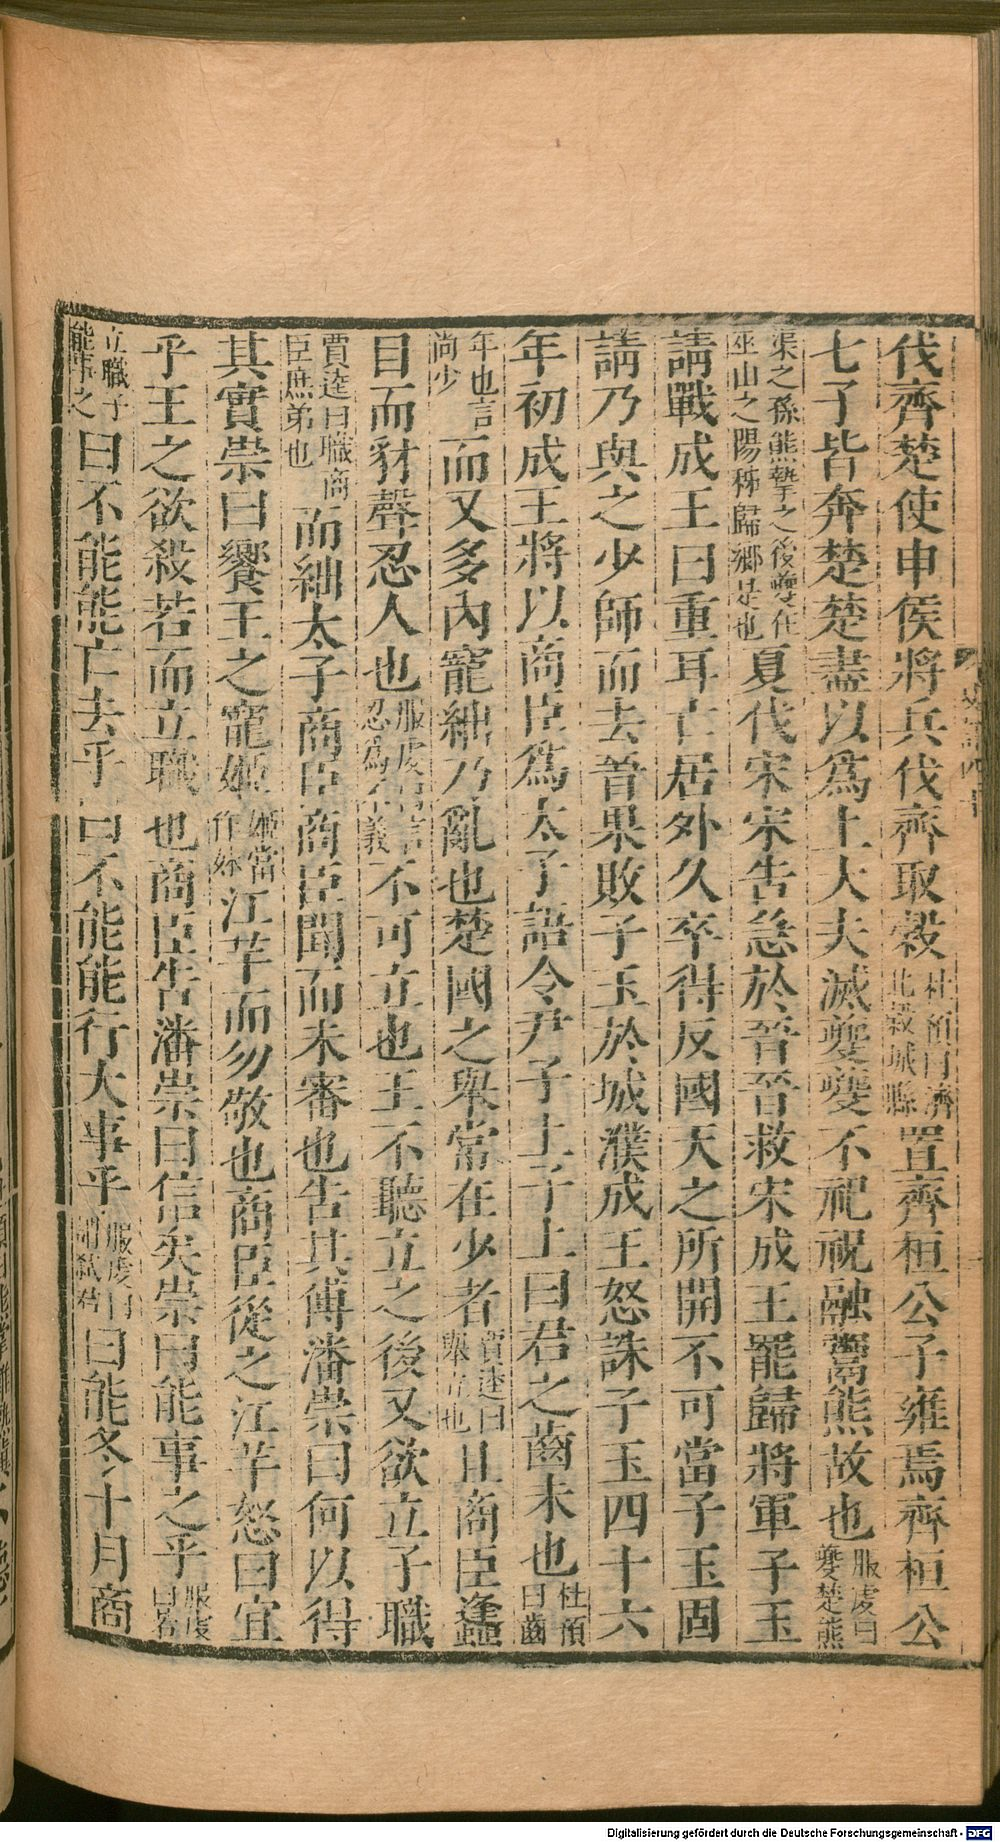 伐齊楚使申侯將兵伐齊取穀杜預曰濟北穀城縣置齊桓公子雍焉齊桓公
七子皆奔楚楚盡以爲上大夫滅夔夔不祀祝融鬻熊故也服虔曰夔楚熊
渠之孫熊摯之後夔在巫山之陽秭歸鄉是也夏伐宋宋告急於晉晉救宋成王罷歸將軍子玉
請戰成王曰重耳亡居外久卒得反國天之所開不可當子玉固
請乃與之少師而去晉果敗子玉於城濮成王怒誅子玉四十六
年初成王將以商臣爲太子語令尹子上子上曰君之齒未也杜預曰齒
年也言尚少而又多內寵絀乃亂也楚國之舉常在少者賈逵曰舉立也且商臣蠭
目而豺聲忍人也服虔曰言忍爲不義不可立也王不聽立之後又欲立子職
賈逵曰職商臣庶弟也而絀太子商臣商臣聞而未審也告其傅潘崇曰何以得
其實崇曰饗王之寵姬姬當作妹江芉而勿敬也商臣從之江芉怒曰宜
乎王之欲殺若而立職也商臣告潘崇曰信矣崇曰能事之乎服虔曰若
立職子能事之曰不能能亡去乎曰不能能行大事乎服虔曰謂弑君曰能冬十月商
Digitalisierung gefördert durch die Deutsche Forschungsgemeinschaft - DFG